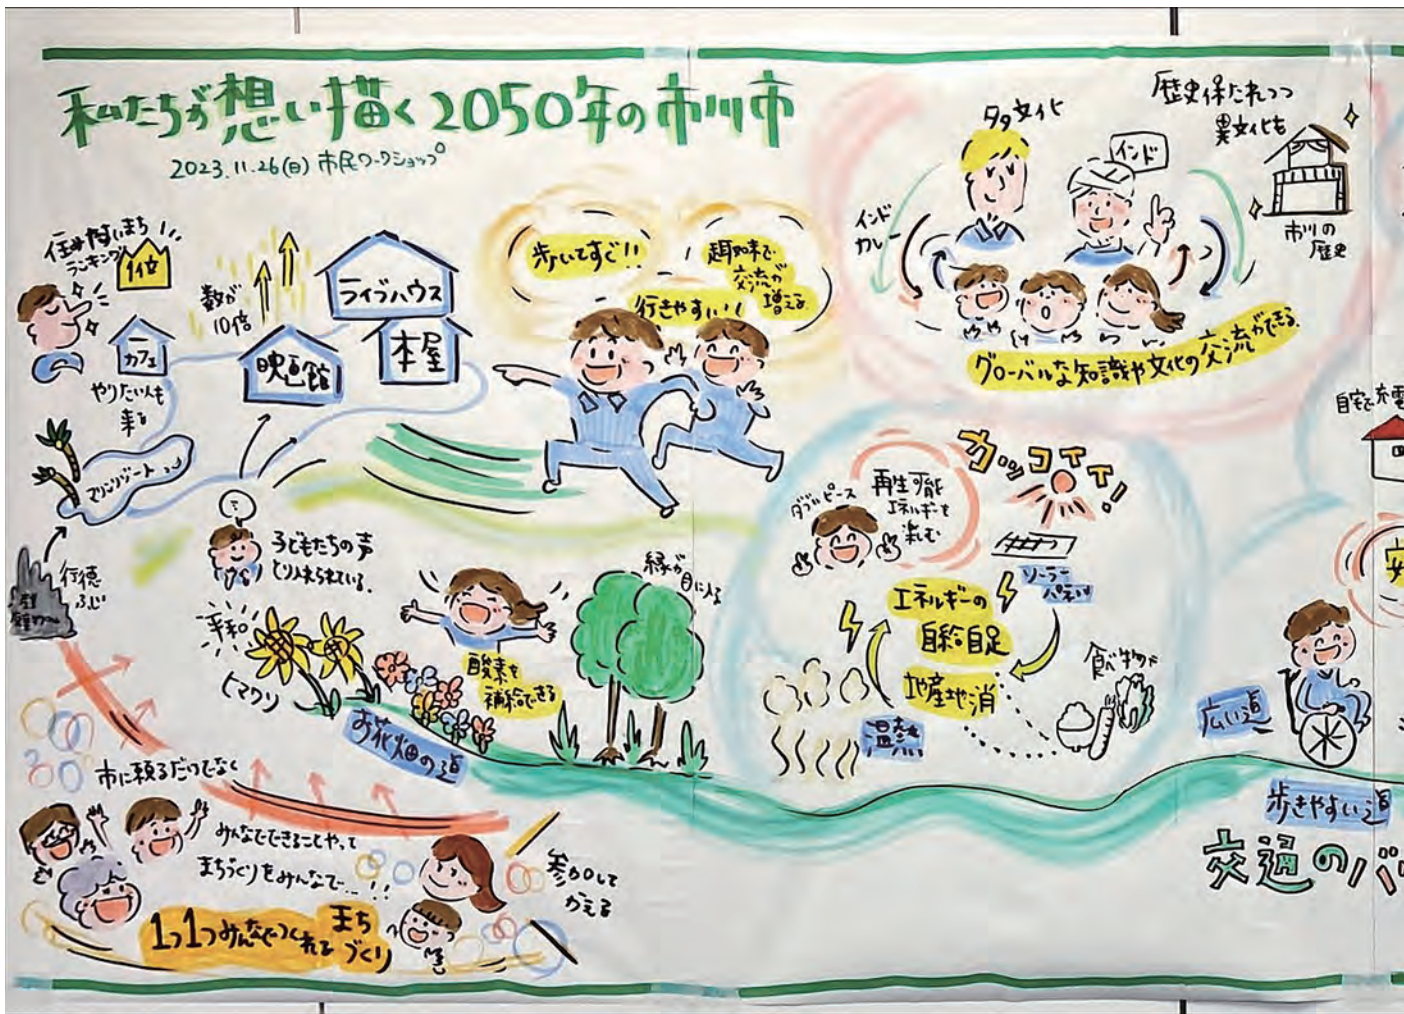 私たちが想い描く2050年の市川市
2023.11.26(日) 市民ワークショップ
住み開いまち
ランキング
1位
カフェ
やりたい人も
来る
マリンリゾート
行徳
ふじ
数が
10倍
映画館
ライブハウス
本屋
歩いてすぐ!!
行きやすい!!
趣味で
交流が
増える
多文化
インド
インド
カレー
歴史保たれつつ
異文化も
市川の
歴史
グローバルな知識や文化の交流ができる
子どもたちの声
とり入れられている.
平和
ヒマワリ
お花畑の道
酸素を
補給できる
緑が
目に入る
カッコイイ!
ダブルピース
再生可能
エネルギーを
楽しむ
ソーラー
パネル
エネルギーの
自給自足
地産地消
温熱
食べ物が
自宅で充電
広い道
歩きやすい道
交通のバ
市に頼るだけでなく
みんなでできることやって
まちづくりをみんなで…!!
1つ1つみんなでつくれる
まち
づくり
参加して
かえる